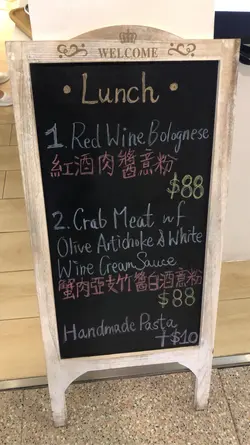 WELCOME
Lunch
1. Red Wine Bolognese
紅酒肉醬意粉
$88
2. Crab Meat w/
Olive Artichoke & White
Wine Cream Sauce
蟹肉亞支竹醬白酒意粉
$88
Handmade Pasta
+$10